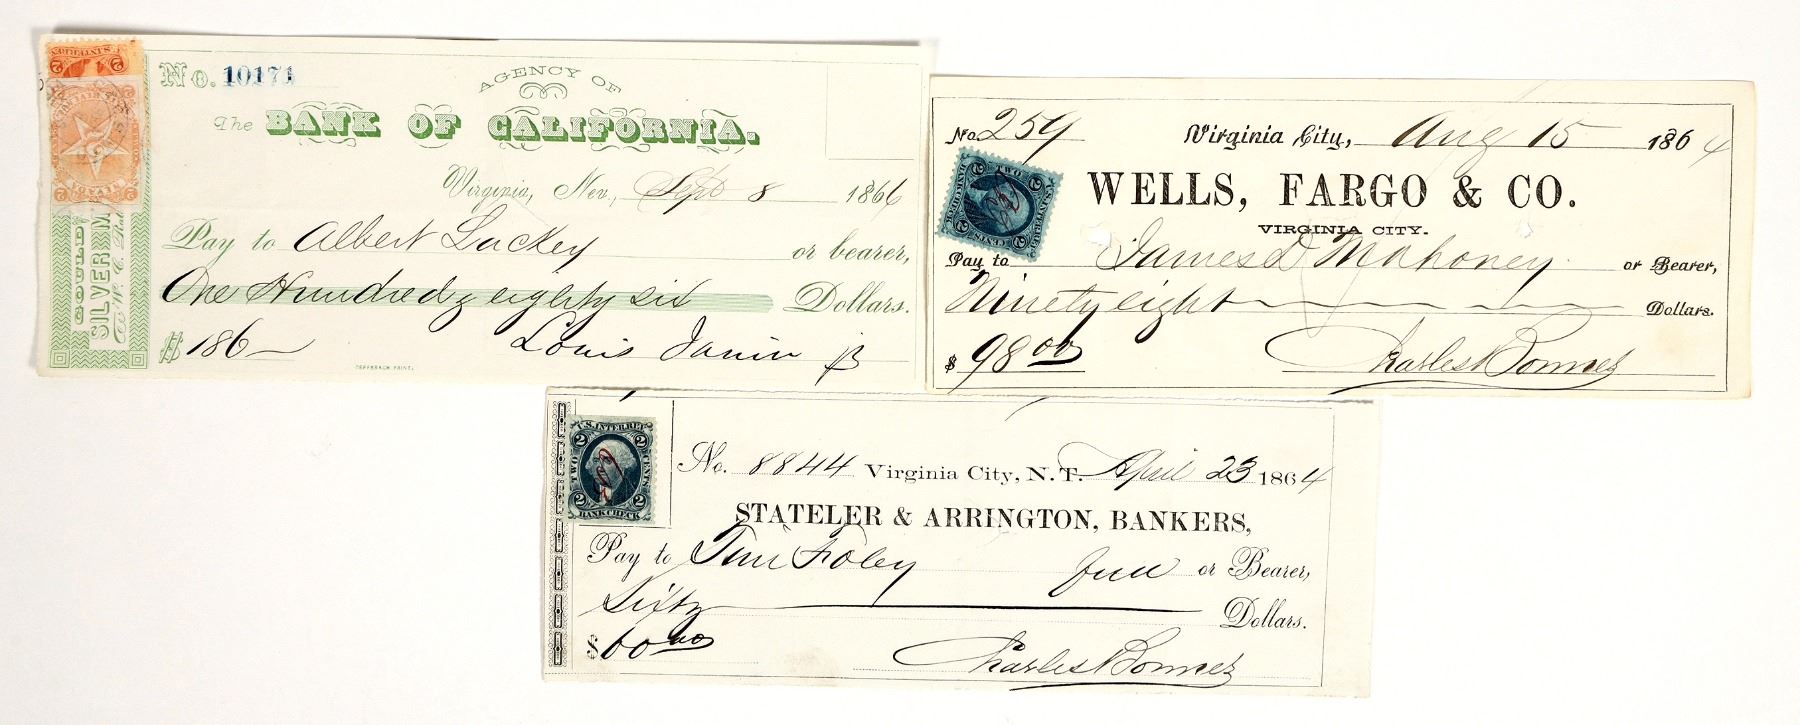 No. 10171
AGENCY OF
The BANK OF CALIFORNIA.
Virginia, Nev., Sept 8 1866
Pay to Albert Lackey or bearer,
One Hundred & eighty six Dollars.
$ 186 Louis Janin Jr
GOULD
SILVER M
TEFFERACH PRINT.
NEVADA
No. 259 Virginia City, Aug 15 1864
WELLS, FARGO & CO.
VIRGINIA CITY.
Pay to James D Mahoney or Bearer,
Ninety eight Dollars.
$ 98 00 Charles Bonner
2 2
TWO CENTS
BANK CHECK
No. 8844 Virginia City, N. T. April 23 1864
STATELER & ARRINGTON, BANKERS,
Pay to Tim Foley or Bearer,
Sixty Dollars.
$ 60 00 Charles Bonner
U.S. INTER. REV.
2 2
TWO CENTS
2 2
BANK CHECK